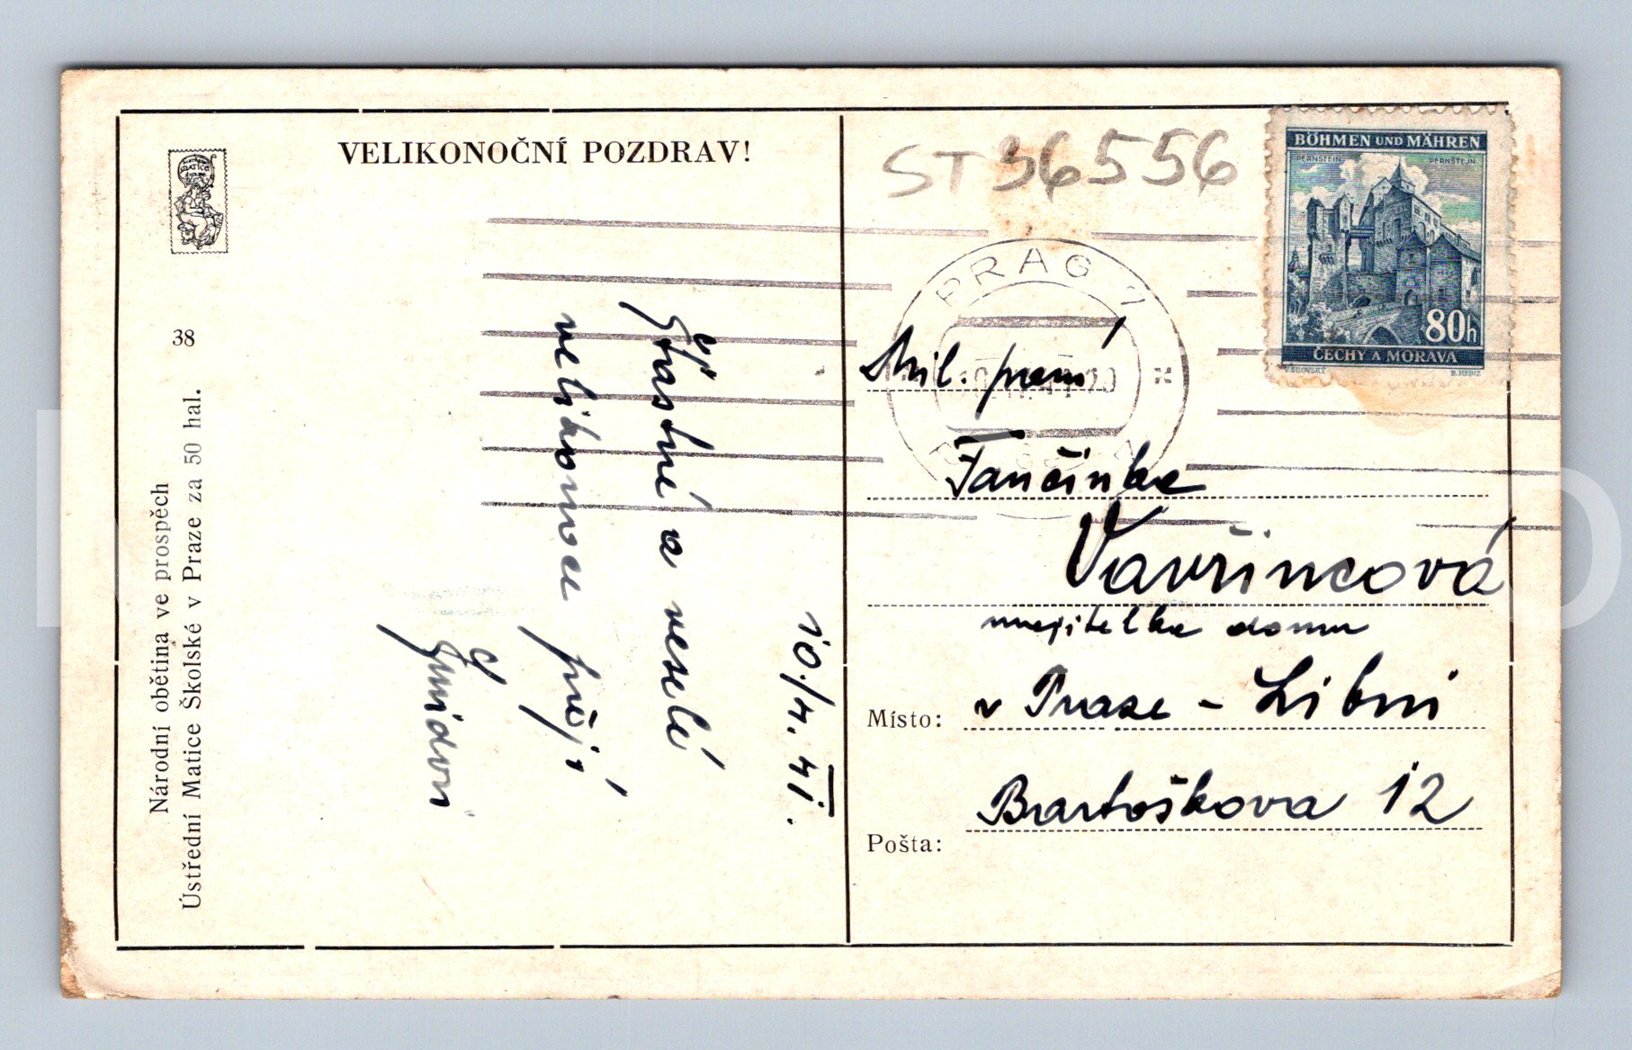 VELIKONOČNÍ POZDRAV!
38
Národní obětina ve prospěch
Ústřední Matice Školské v Praze za 50 hal.
10./4. 41.
Šťastné a veselé
velikonoce přejí
ST 36556
BÖHMEN UND MÄHREN
PERNSTEIN PERNŠTEJN
80h
ČECHY A MORAVA
B. HEINZ
PRAG 7
Mil. paní
Fančinka
Vavřincová
majitelka domu
Místo: v Praze - Libni
Bartoškova 12
Pošta: